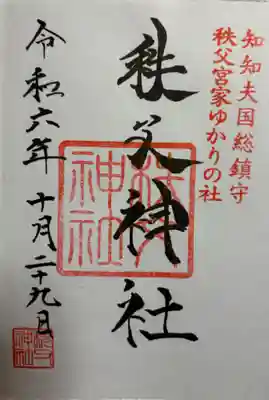 知知夫国総鎮守
秩父宮家ゆかりの社
秩父神社
秩父神社
令和六年十月二十九日
秩父神社